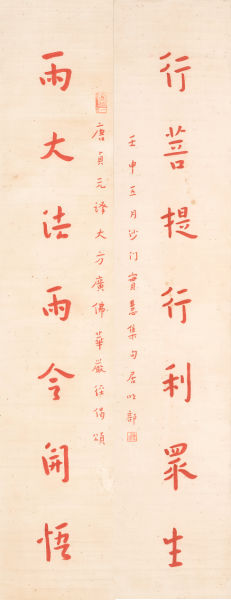 行菩提行利眾生
壬申五月沙門寶慧集句居
唐貞元譯大方廣佛華嚴經偈頌
雨大法雨令開悟